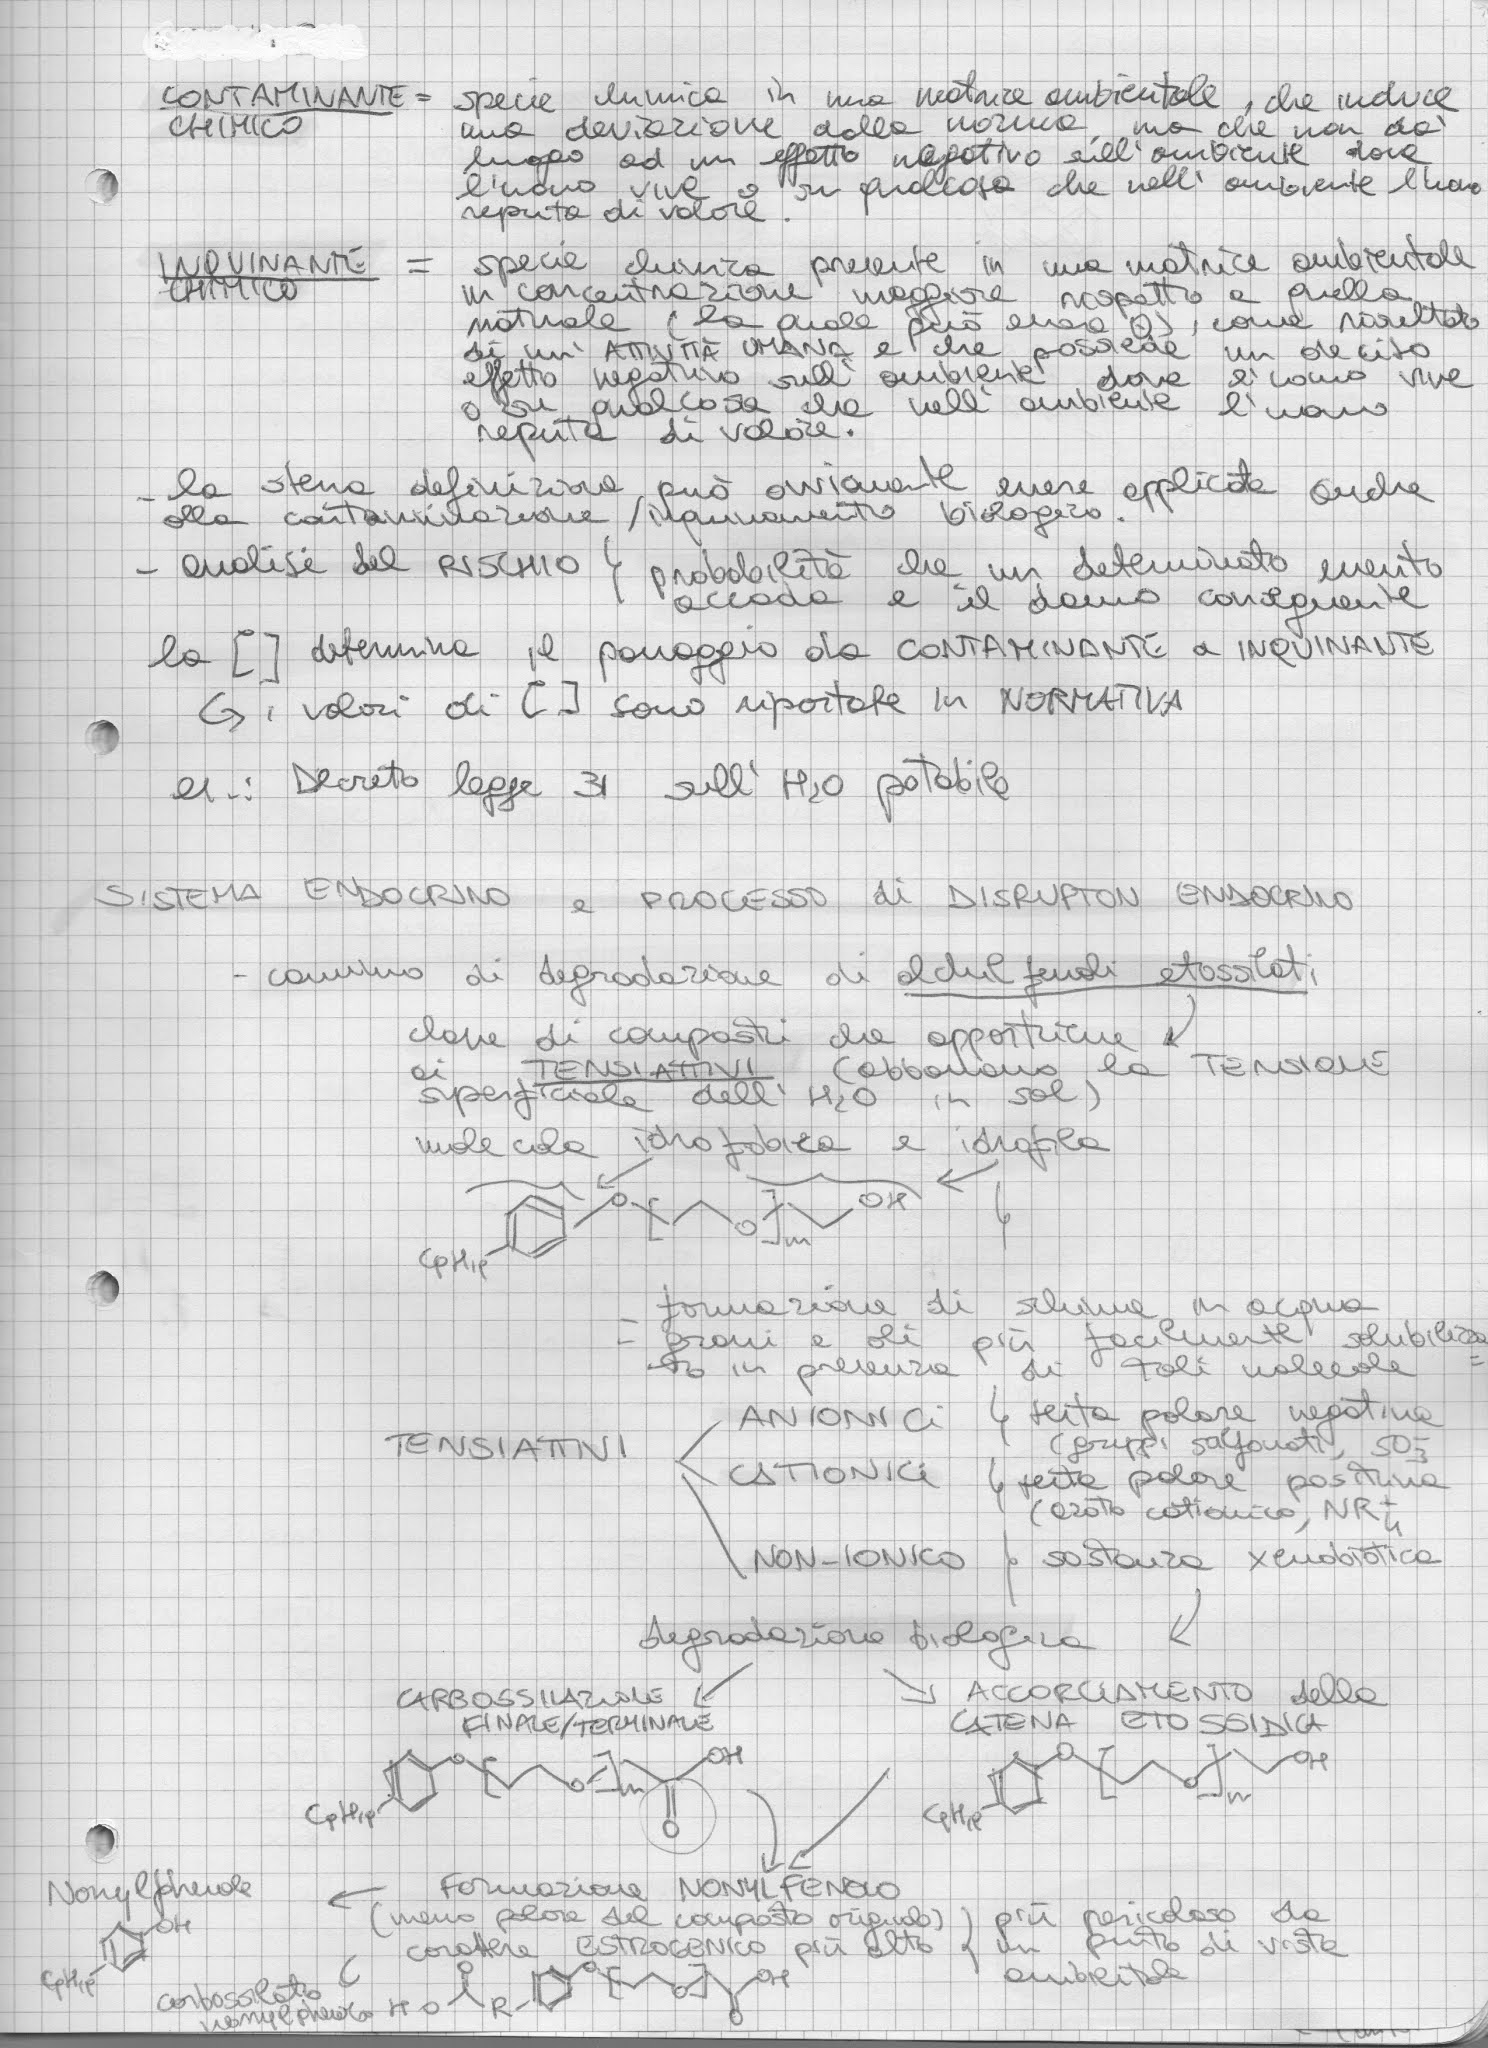 CONTAMINANTE = specie chimica in una matrice ambientale, che induce
CHIMICO una deviazione dalla norma, ma che non dà
luogo ad un effetto negativo sull'ambiente dove
l'uomo vive o su qualcosa che nell'ambiente l'uomo
reputa di valore.
INQUINANTE = specie chimica presente in una matrice ambientale
CHIMICO in concentrazione maggiore rispetto a quella
naturale (la quale può essere 0), come risultato
di un' ATTIVITÀ UMANA e che possiede un deciso
effetto negativo sull'ambiente dove l'uomo vive
o su qualcosa che nell'ambiente l'uomo
reputa di valore.
- la stessa definizione può ovviamente essere applicata anche
alla contaminazione/inquinamento biologico.
- analisi del RISCHIO ↳ probabilità che un determinato evento
accada e il danno conseguente
la [] determina il passaggio da CONTAMINANTE a INQUINANTE
↳ i valori di [] sono riportate in NORMATIVA
es.: Decreto legge 31 sull' H2O potabile
SISTEMA ENDOCRINO e PROCESSO di DISRUPTON ENDOCRINO
- cammino di degradazione di alchilfenoli etossilati
classe di composti che appartiene
ai TENSIATTIVI (abbassano la TENSIONE
superficiale dell' H2O in sol)
molecola idrofobica e idrofila
O O m OH
C9H19
- formazione di schiuma in acqua
= grassi e oli più facilmente solubilizza
to in presenza di tali molecole =
TENSIATTIVI
ANIONICI ↳ testa polare negativa
(gruppi solfonati, SO3-
CATIONICI ↳ testa polare positiva
(azoto cationico, NR4+
NON-IONICO ↳ sostanza xenobiotica
degradazione biologica
CARBOSSILAZIONE ACCORCIAMENTO della
FINALE/TERMINALE CATENA ETOSSIDICA
O O m OH O O m OH
C9H19 O C9H19
Nonylphenole Formazione NONYLFENOLO
OH (meno polare del composto originale) più pericoloso da
C9H19 carattere ESTROGENICO più alto un punto di vista
ambientale
carbossilato
nonylphenolo HO O R O O OH O